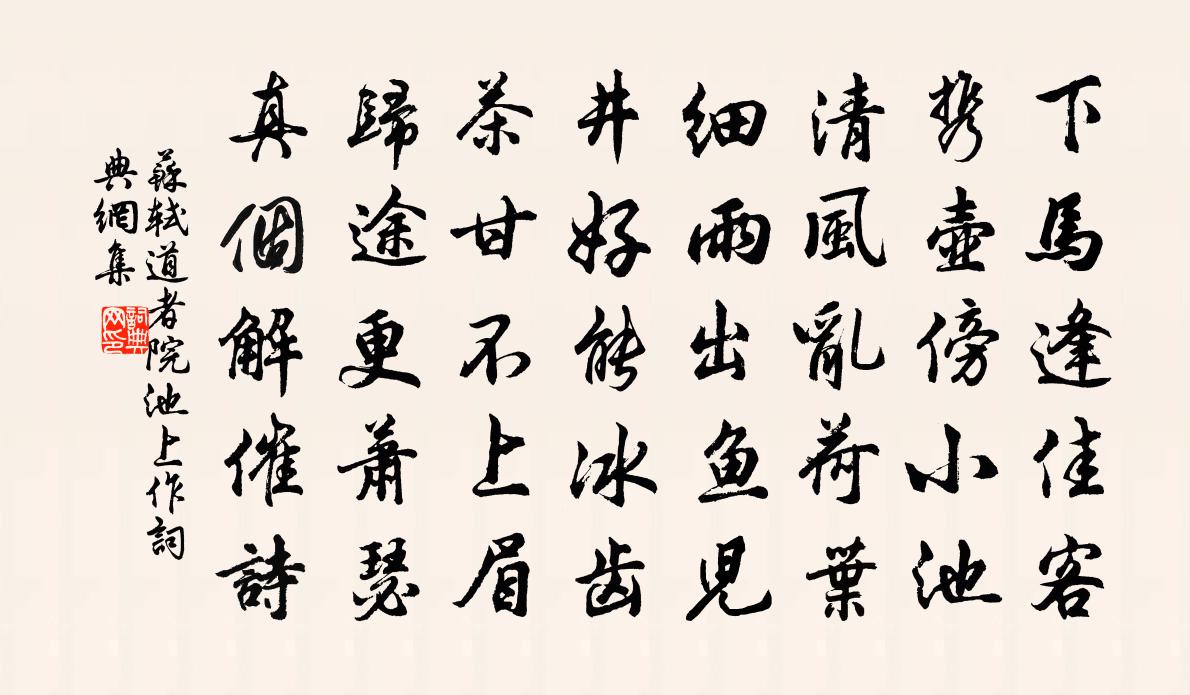 下馬逢佳客
携壺傍小池
清風亂荷葉
細雨出魚児
井好能冰齒
茶甘不上眉
歸途更蕭瑟
真個解催詩
蘇軾道者院池上作詞
典網集
詞典
网印